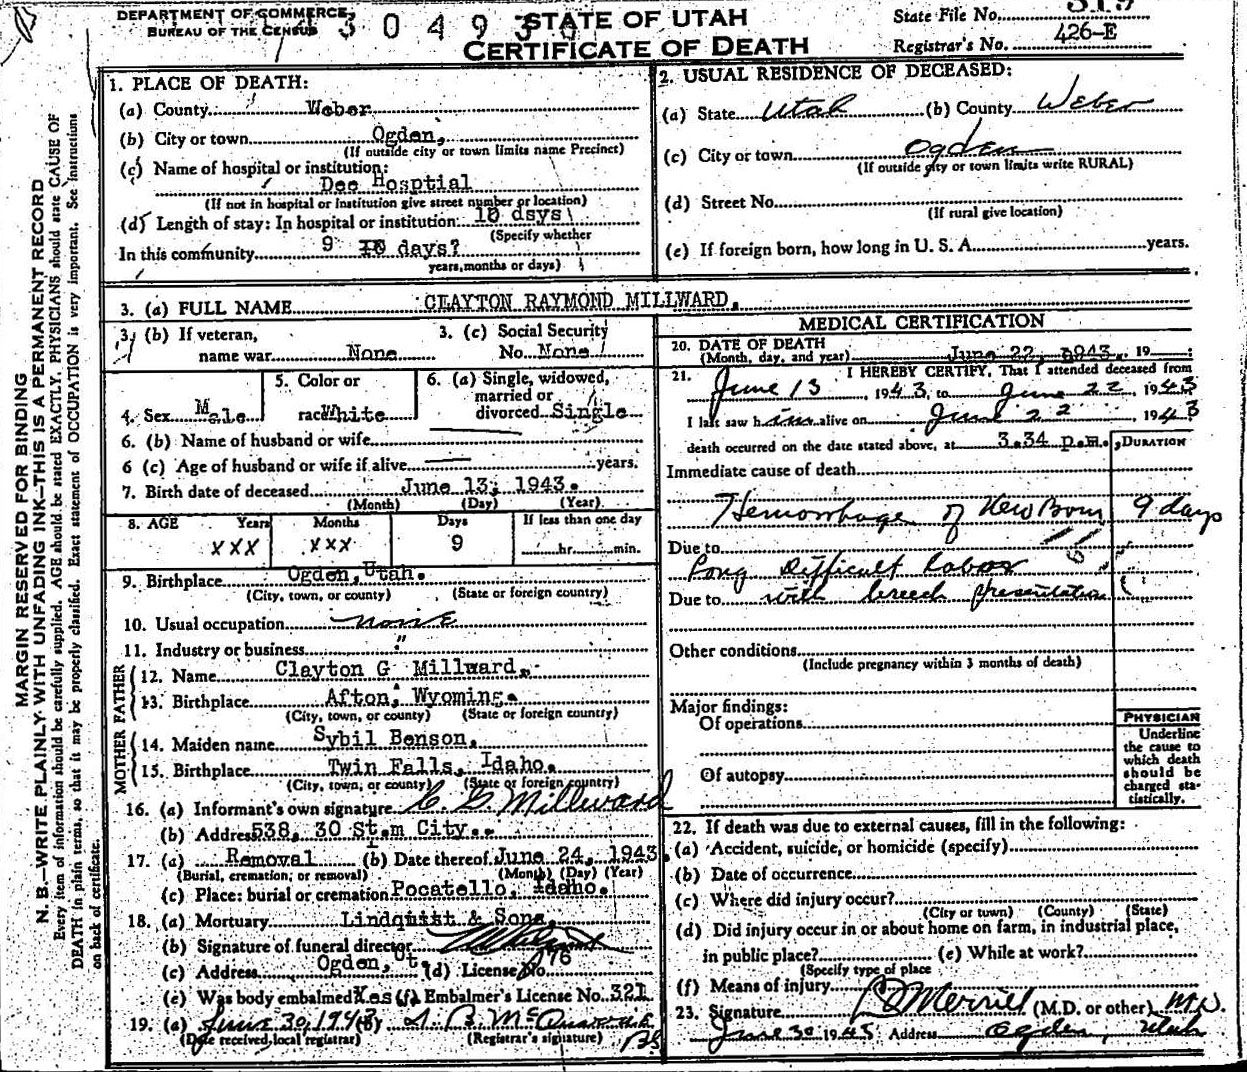 DEPARTMENT OF COMMERCE
BUREAU OF THE CENSUS
3 0 4 9 3
STATE OF UTAH
CERTIFICATE OF DEATH
State File No.
Registrar's No. 426-E
MARGIN RESERVED FOR BINDING
N. B.—WRITE PLAINLY WITH UNFADING INK—THIS IS A PERMANENT RECORD
Every item of information should be carefully supplied. AGE should be stated EXACTLY. PHYSICIANS should state CAUSE OF
DEATH in plain terms, so that it may be properly classified. Exact statement of OCCUPATION is very important. See instructions
on back of certificate.
1. PLACE OF DEATH:
(a) County Weber
(b) City or town Ogden,
(If outside city or town limits name Precinct)
(c) Name of hospital or institution:
Dee Hosptial
(If not in hospital or institution give street number or location)
(d) Length of stay: In hospital or institution 10 dsys
(Specify whether
In this community 9 10 days?
years, months or days)
2. USUAL RESIDENCE OF DECEASED:
(a) State Utah (b) County Weber
(c) City or town Ogden
(If outside city or town limits write RURAL)
(d) Street No.
(If rural give location)
(e) If foreign born, how long in U. S. A. years.
3. (a) FULL NAME CLAYTON RAYMOND MILLWARD.
3. (b) If veteran,
name war None
3. (c) Social Security
No. None
4. Sex Male
5. Color or
race White
6. (a) Single, widowed,
married or
divorced Single
6. (b) Name of husband or wife
6 (c) Age of husband or wife if alive years.
7. Birth date of deceased June 13, 1943.
(Month) (Day) (Year)
8. AGE Years Months Days If less than one day
XXX XXX 9 hr. min.
9. Birthplace Ogden, Utah.
(City, town, or county) (State or foreign country)
10. Usual occupation none
11. Industry or business "
FATHER
12. Name Clayton G Millward.
13. Birthplace Afton, Wyoming.
(City, town, or county) (State or foreign country)
MOTHER
14. Maiden name Sybil Benson.
15. Birthplace Twin Falls, Idaho.
(City, town, or county) (State or foreign country)
16. (a) Informant's own signature C. G. Millward
(b) Address 538, 30 St.m City..
17. (a) Removal (b) Date thereof June 24, 1943
(Burial, cremation, or removal) (Month) (Day) (Year)
(c) Place: burial or cremation Pocatello, Idaho.
18. (a) Mortuary Lindquist & Sons.
(b) Signature of funeral director
(c) Address Ogden, Ut. (d) License No. 176
(e) Was body embalmed Yes (f) Embalmer's License No. 321
19. (a) June 30, 1943 (b)
(Date received, local registrar) (Registrar's signature)
MEDICAL CERTIFICATION
20. DATE OF DEATH
(Month, day, and year) June 22, 1943. 19
21. I HEREBY CERTIFY, That I attended deceased from
June 13, 1943, to June 22, 1943
I last saw h im alive on June 22, 1943
death occurred on the date stated above, at 3.34 p.m. DURATION
Immediate cause of death
Hemorrhage of New Born 9 days
Due to
Long Difficult labor
Due to with breech presentation
Other conditions
(Include pregnancy within 3 months of death)
Major findings:
Of operations
Of autopsy
PHYSICIAN
Underline
the cause to
which death
should be
charged sta-
tistically.
22. If death was due to external causes, fill in the following:
(a) Accident, suicide, or homicide (specify)
(b) Date of occurrence
(c) Where did injury occur?
(City or town) (County) (State)
(d) Did injury occur in or about home on farm, in industrial place,
in public place? (e) While at work?
(Specify type of place
(f) Means of injury
23. Signature Merrill (M.D. or other) M.D.
June 30 1943 Address Ogden, Utah